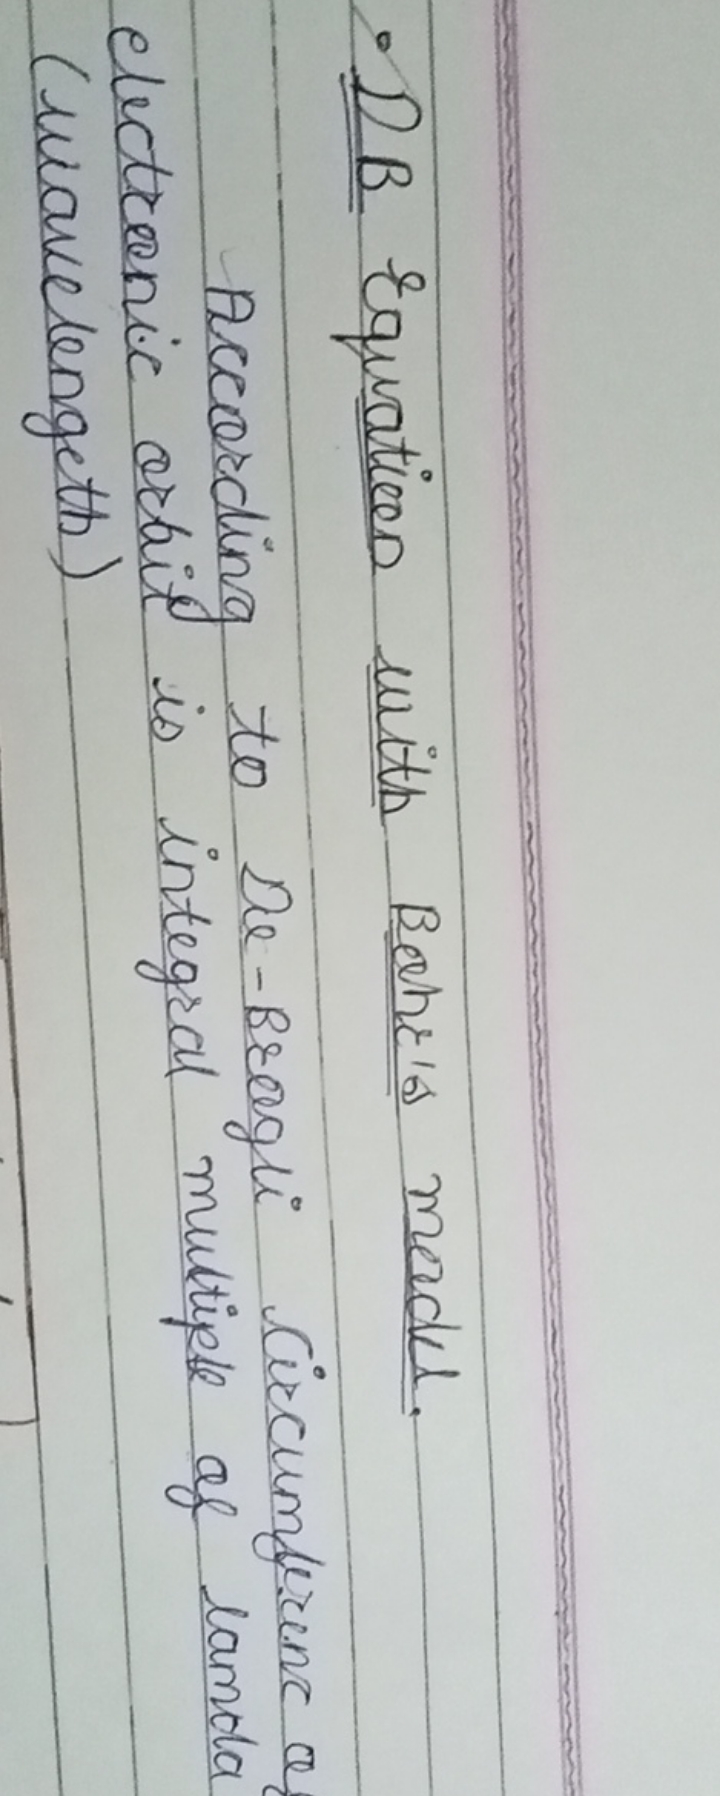 • DB Equation with Bohr's model.
According to De-Brogli Circumferenc of
electronic orbit is integral multiple of lamda
(wavelength)